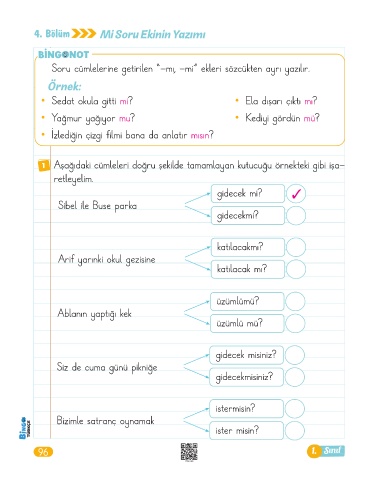 4. Bölüm Mi Soru Ekinin Yazımı
BİNGONOT
Soru cümlelerine getirilen "-mı, -mi" ekleri sözcükten ayrı yazılır.
Örnek:
• Sedat okula gitti mi?
• Ela dışarı çıktı mı?
• Yağmur yağıyor mu?
• Kediyi gördün mü?
• İzlediğin çizgi filmi bana da anlatır mısın?
1 Aşağıdaki cümleleri doğru şekilde tamamlayan kutucuğu örnekteki gibi işa-
retleyelim.
Sibel ile Buse parka
gidecek mi? ✓
gidecekmi?
Arif yarınki okul gezisine
katılacakmı?
katılacak mı?
Ablanın yaptığı kek
üzümlümü?
üzümlü mü?
Siz de cuma günü pikniğe
gidecek misiniz?
gidecekmisiniz?
Bizimle satranç oynamak
istermisin?
ister misin?
BİNGO
TÜRKÇE
96
1. Sınıf